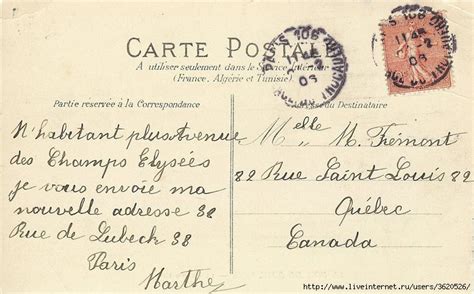 CARTE POSTALE
A utiliser seulement dans le Service Intérieur
(France, Algérie et Tunisie).
Partie réservée à la Correspondance
du Destinataire
N'habitant plus Avenue
des Champs Elysées
je vous envoie ma
nouvelle adresse 38
Rue de Lubeck 38
Paris
Marthe
Melle M. Frémont
82 Rue Saint Louis 82
Québec
Canada
PARIS 106
http://www.liveinternet.ru/users/3620526/